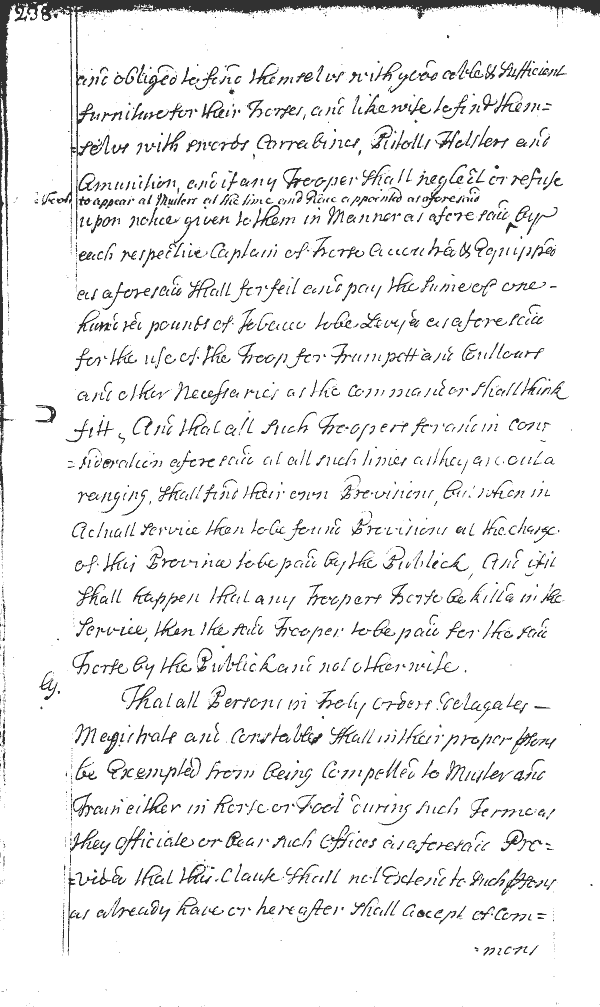 238.
and obliged to find themselves with good able & Sufficient
furniture for their horses, and likewise to find them=
=selves with swords, Carrabines, Pistolls Holsters and
Amunition, and if any Trooper shall neglect or refuse
to appear at Musters at the time and place appointed as aforesaid
upon notice given to them in Manner as aforesaid by
each respective Captain of horse Accoutred & Equipped
as aforesaid shall forfeit and pay the Sume of one-
hundred pounds of Tobacco to be Levyed as aforesaid
for the use of the Troop for Trumpett and Cullours
and other Necessaries as the Commander shall think
fitt, And that all such Troopers for and in Con
=sideration aforesaid at all such times as they are out a
ranging, shall find their own Provisions, but when in
Actuall service then to be found Provisions at the charge
of this Province to be paid by the Publick, And if it
shall happen that any Troopers horse be killd in the
Service, then the said Trooper to be paid for the said
horse by the Publick and not otherwise.
That all Persons in holy orders Delagates -
Magistrats and Constables shall in their proper psons
be Exempted from being Compelled to Muster and
Train either in horse or Foot during such Terme as
they officiate or bear such offices as aforesaid Pro=
=vided that this Clause shall not Extend to such psons
as already have or hereafter shall accept of Com=
=mons